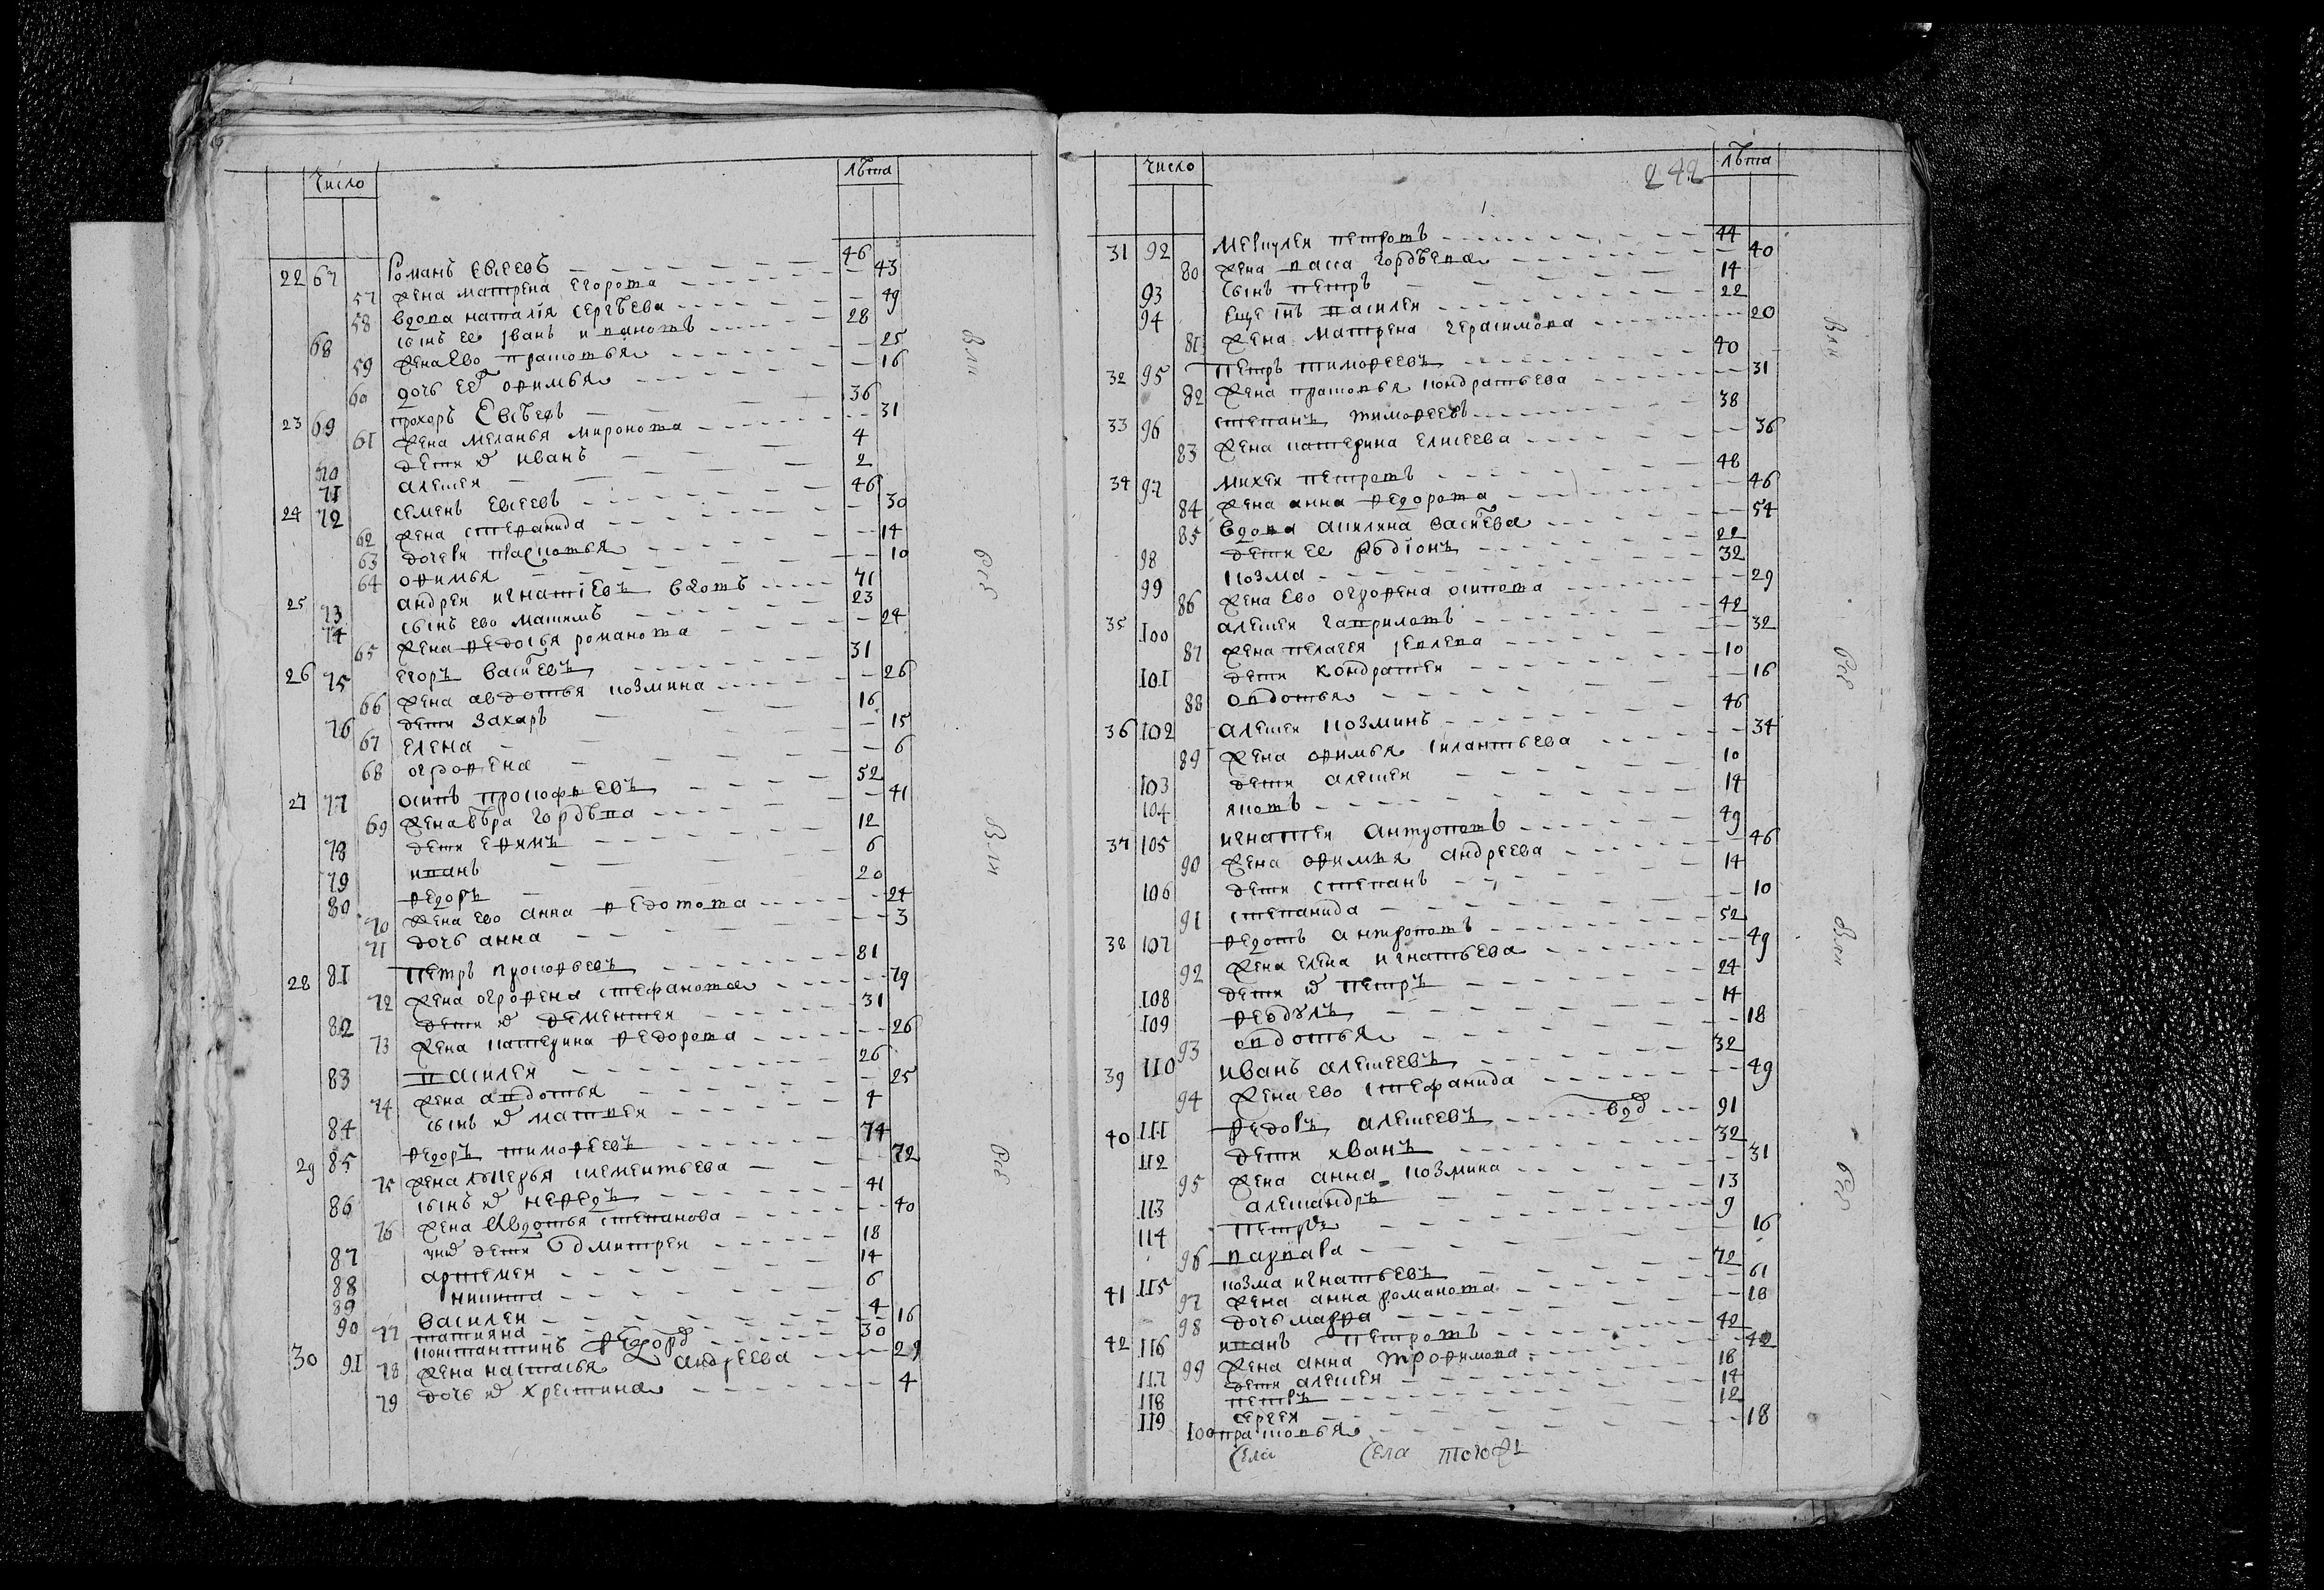 Число лѣта
22 67 Романъ Евсеевъ 46
57 жена матрена егорова 43
58 вдова наталія сергѣева 49
68 сынъ ее іванъ 28
59 жена ево прасковья 25
60 дочь ево офимья 16
23 69 прохоръ Евсѣевъ 36
61 жена меланья миронова 31
70 дети их иванъ 4
71 алексеи 2
24 72 семенъ евсеевъ 46
62 жена стефанида 30
63 дочери прасковья 14
64 офимья 10
25 73 андреи игнатіевъ вдовъ 71
74 сынъ ево максимъ 23
65 жена федосья романова 24
26 75 егоръ васілевъ 31
66 жена авдотья козмина 26
76 дети захаръ 16
67 елена 15
68 огрофена 6
27 77 осипъ прокофьевъ 52
69 жена вѣра гордѣва 41
78 дети ефимъ 12
79 иванъ 6
80 федоръ 20
70 жена ево анна федотова 24
71 дочь анна 3
28 81 Петръ прокофьевъ 81
72 жена огрофена стефанова 79
82 дети их дементеи 31
73 жена катерина федорова 26
83 василеи 26
74 жена авдотья 25
84 сынъ их матвеи 4
29 85 федоръ тимофеевъ 74
75 жена клементьева 72
86 сынъ их нефедъ 41
76 жена авдотья степанова 40
87 дети дмитреи 18
88 артемеи 14
89 никита 6
90 василеи 4
77 татияна 16
30 91 константинъ федоров 30
78 жена настасья андреева 29
79 дочь их христина 4
вли
рѣз
вли
рѣз
Число 242 лѣта
31 92 меркулеи петровъ 44
80 жена васса гордѣева 40
93 сынъ петръ 14
94 еще сынъ василеи 22
81 жена матрена герасимова 20
32 95 петръ тимофеевъ 40
82 жена прасковья кондратьева 31
33 96 степанъ тимофеевъ 38
83 жена катерина елисеева 36
34 97 михеи петровъ 48
84 жена анна федорова 46
85 вдова акилина васілева 54
98 дети ее родіонъ 22
99 козма 32
86 жена ево огрофена осипова 29
35 100 алексеи гавриловъ 42
87 жена пелагея іевлева 32
101 дети кондратеи 10
88 овдотья 16
36 102 алексеи козминъ 46
89 жена офимья силантьева 34
103 дети алексеи 10
104 яковъ 14
37 105 игнатеи антроповъ 49
90 жена офимья андреева 46
106 дети степанъ 14
91 степанида 10
38 107 федотъ антроповъ 52
92 жена елена игнатьева 49
108 дети их петръ 24
109 федулъ 14
93 овдотья 18
39 110 иванъ алексеевъ 32
94 жена ево стефанида 49
40 111 федоръ алексеевъ вдо 91
112 дети иванъ 32
95 жена анна козмина 31
113 александръ 13
114 петръ 9
96 варвара 16
41 115 козма игнатьевъ 72
97 жена анна романова 61
98 дочь мавра 18
42 116 иванъ петровъ 42
99 жена анна трофимова 42
117 дети алексеи 18
118 петръ 14
119 сергея 12
100 прасковья 18
Села Села тогожъ
вли
рѣз
вли
рѣз